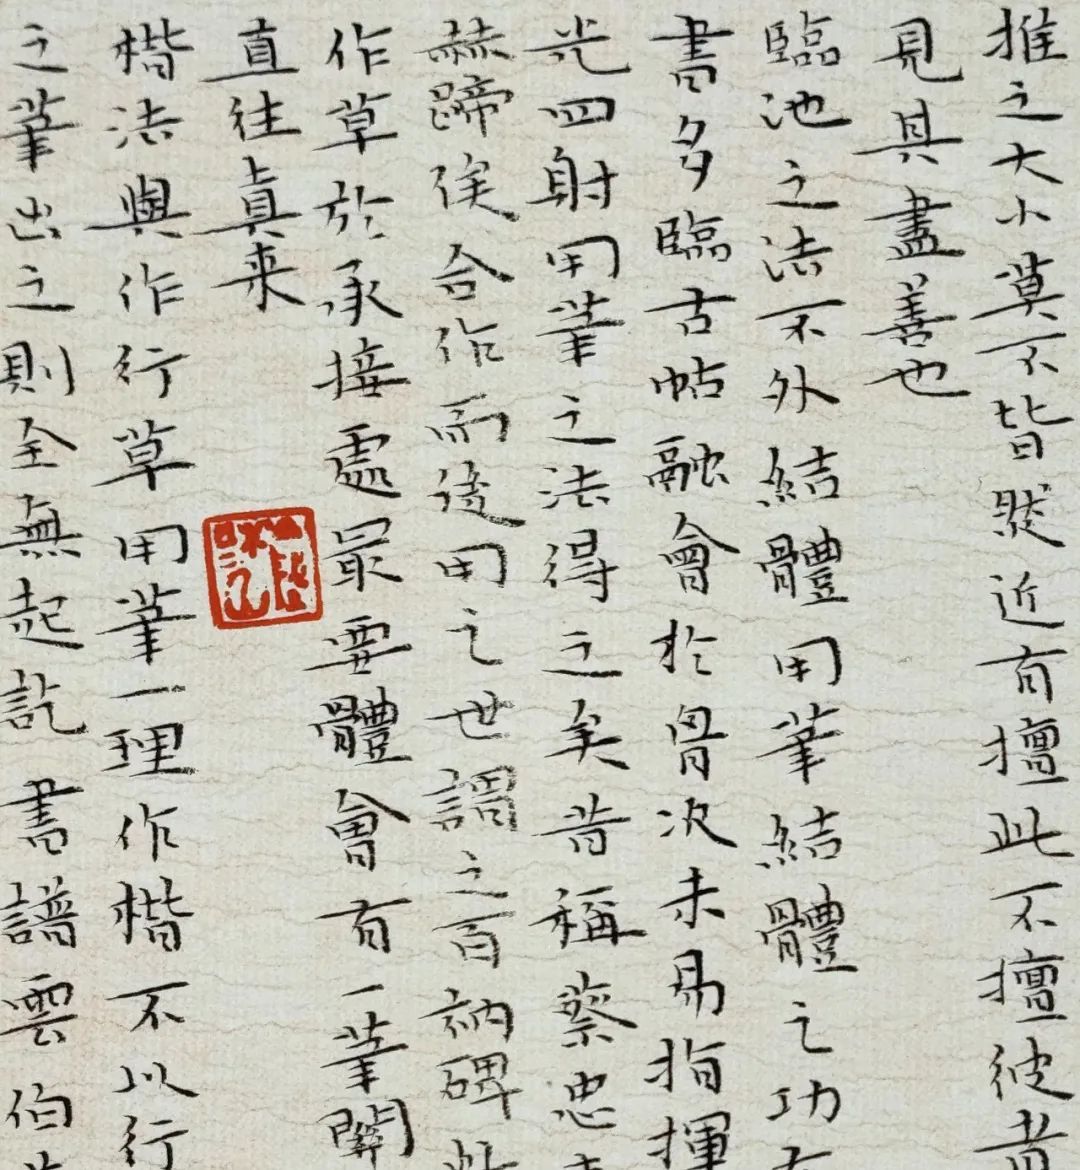 推之大小莫不皆然近有擅此不擅彼者
見其盡善也
臨池之法不外結體用筆結體之功
書多臨古帖融會於胷次未易指揮
光四射用筆之法得之矣昔稱蔡忠
赫蹏俟合作而後用之世謂之百衲碑
作草於承接處最要體會有一筆關
直往直来
楷法與作行草用筆一理作楷不以行
之筆出之則全無起訖書譜雲伯